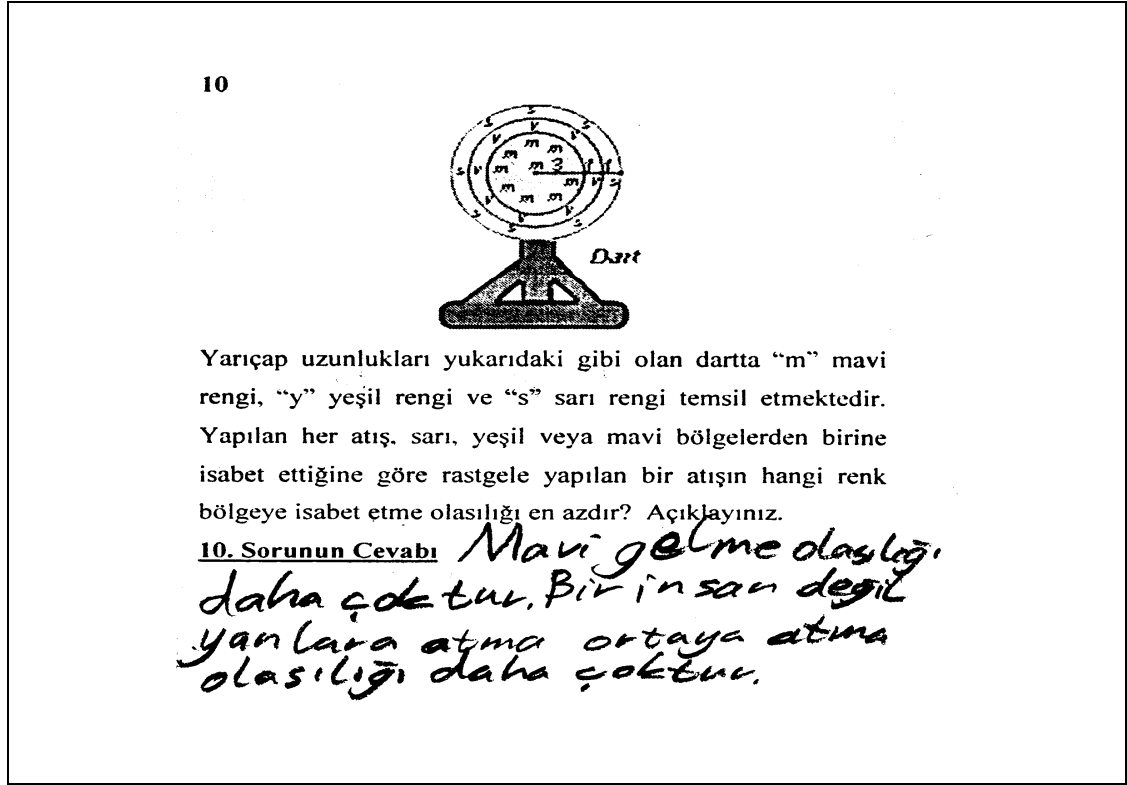 10
s
s s
v
v v
m
m m
s v m m 3 1 1
m v s
m m m
v v
s v s
s
Dart
Yarıçap uzunlukları yukarıdaki gibi olan dartta “m” mavi
rengi, “y” yeşil rengi ve “s” sarı rengi temsil etmektedir.
Yapılan her atış, sarı, yeşil veya mavi bölgelerden birine
isabet ettiğine göre rastgele yapılan bir atışın hangi renk
bölgeye isabet etme olasılığı en azdır? Açıklayınız.
10. Sorunun Cevabı Mavi gelme olasılığı
daha çoktur. Bir insan değil
yanlara atma ortaya atma
olasılığı daha çoktur.